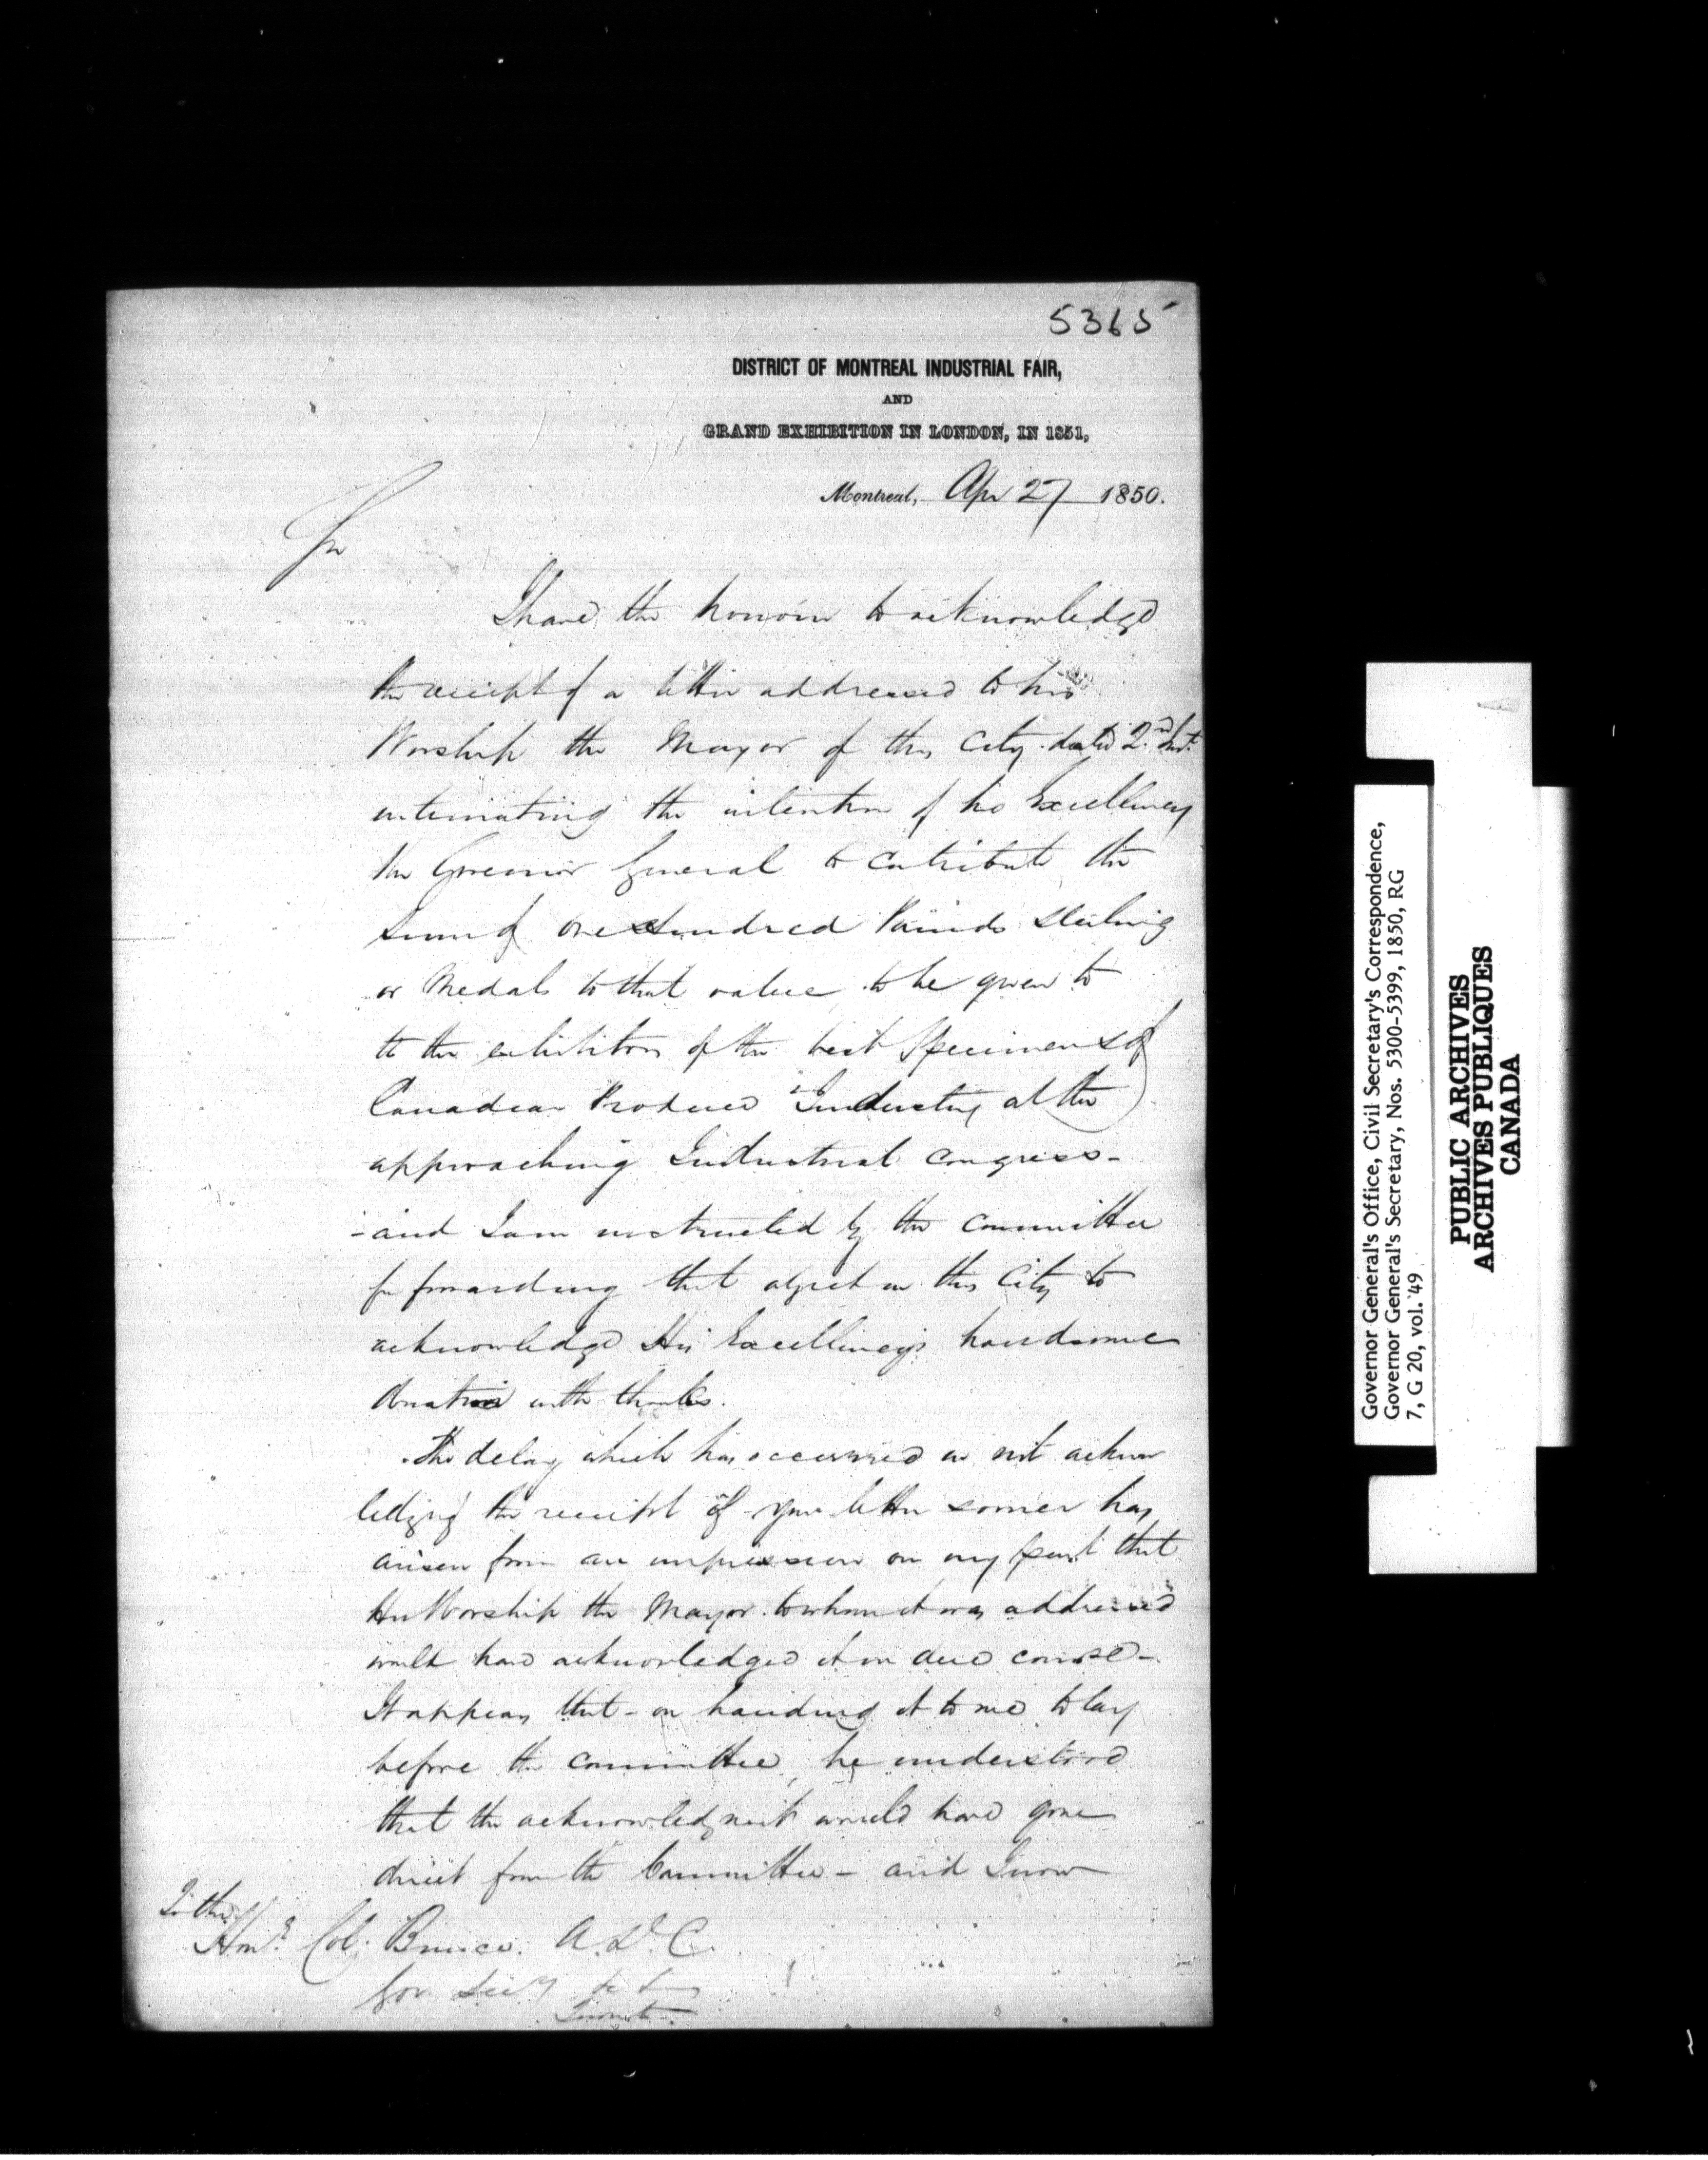 5365
DISTRICT OF MONTREAL INDUSTRIAL FAIR,
AND
GRAND EXHIBITION IN LONDON, IN 1851,
Montreal, Apr 27 1850.
Sir
I have the honour to acknowledge
the receipt of a letter addressed to his
Worship the Mayor of this City dated 2nd Inst.
intimating the intention of his Excellency
the Governor General to contribute the
sum of one Hundred Pounds Sterling
or Medals to that value to be given to
to the exhibitors of the best Specimens of
Canadian Produce & Industry at the
approaching Industrial Congress -
- and I am instructed by the Committee
for forwarding that object in this City to
acknowledge His Excellency's handsome
donation with thanks.
The delay which has occurred in not acknow
ledging the receipt of your letter sooner has
arisen from an impression on my part that
His Worship the Mayor to whom it was addressed
would have acknowledged it in due course -
It appears that - on handing it to me to lay
before the Committee, he understood
that the acknowledgment would have gone
direct from the Committee - and I now
To the
Honle Col. Bruce. A.D.C.
Gov. Secy
Toronto -
Governor General's Office, Civil Secretary's Correspondence,
Governor General's Secretary, Nos. 5300-5399, 1850, RG
7, G 20, vol. 49
PUBLIC ARCHIVES
ARCHIVES PUBLIQUES
CANADA